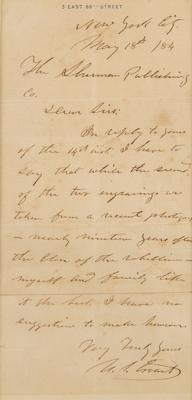 3 EAST 66TH STREET
New York City
May 18th /84
The Sherman Publishing
Co.
Dear Sirs:
In reply to yours
of the 14th inst I have to
say that while the second
of the two engravings is
taken from a recent photograph
— nearly nineteen years after
the close of the rebellion —
myself and family like
it the best. I have no
suggestion to make however.
Very Truly Yours
U. S. Grant